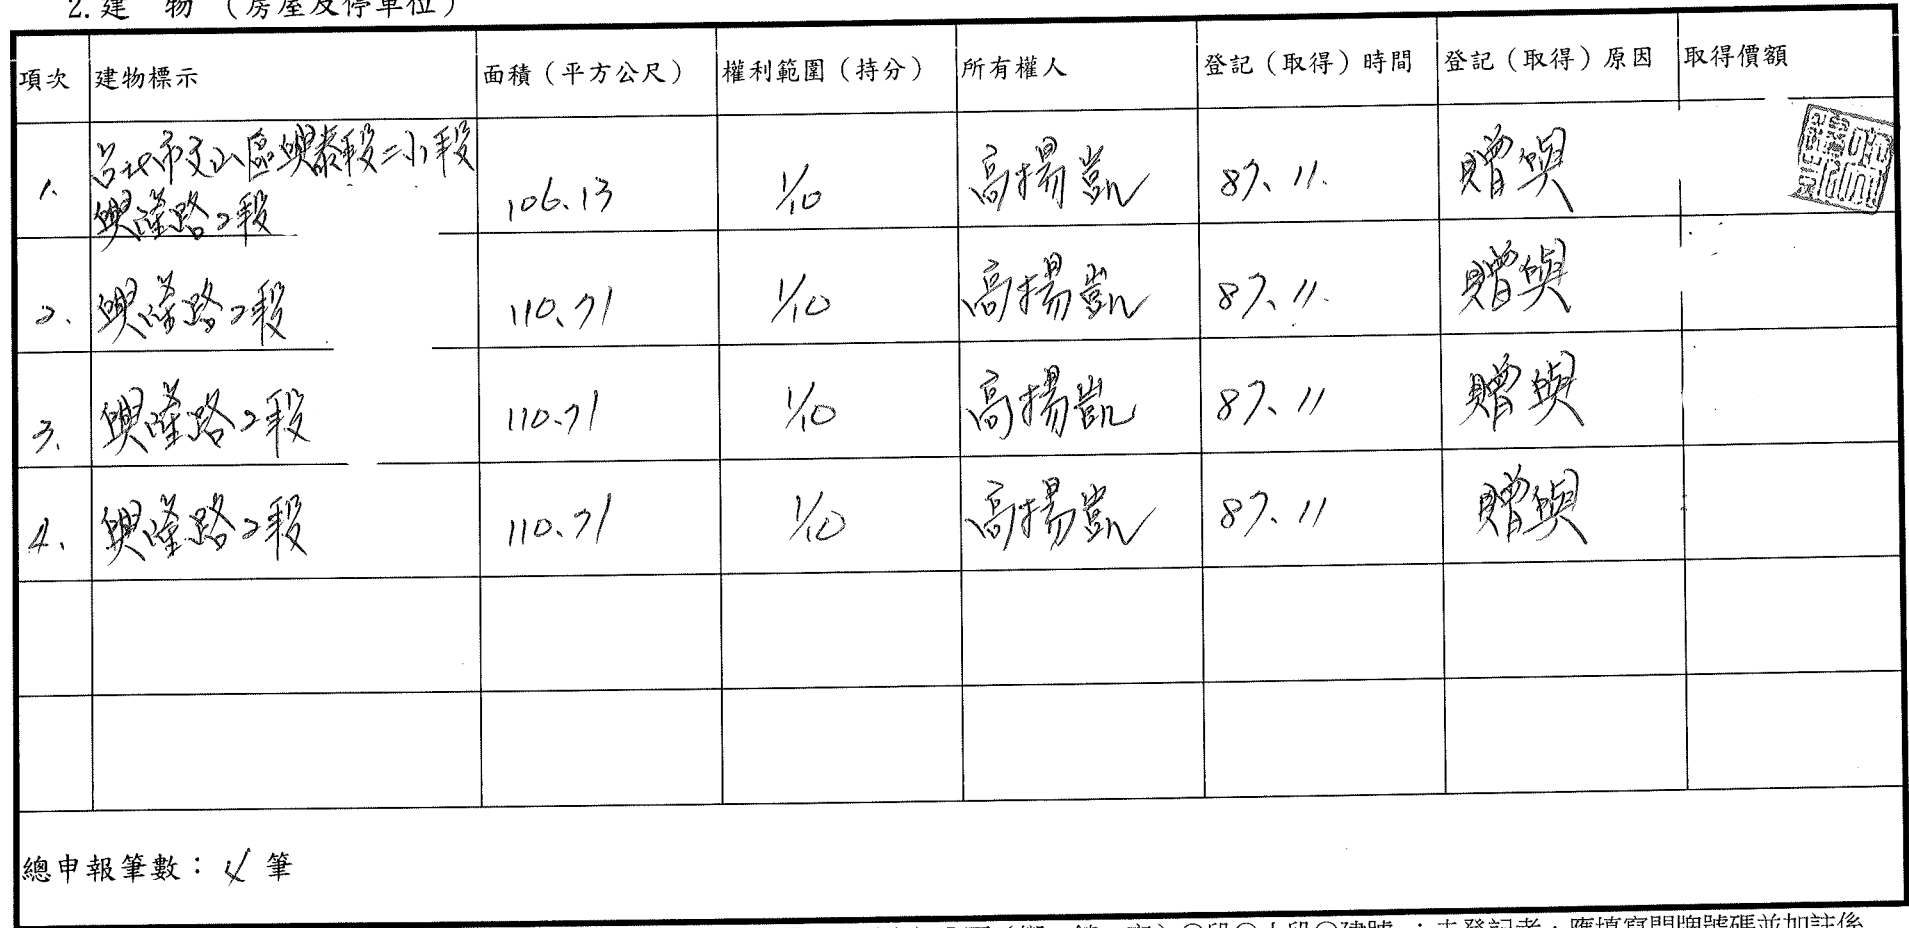 2. 建 物 （房屋及停車位）
項次 建物標示 面積（平方公尺） 權利範圍（持分） 所有權人 登記（取得）時間 登記（取得）原因 取得價額
台北市文山區興泰段二小段
1. 興隆路2段 106.13 1/10 高揚凱 87.11. 贈與
2. 興隆路2段 110.71 1/10 高揚凱 87.11. 贈與
3. 興隆路2段 110.71 1/10 高揚凱 87.11 贈與
4. 興隆路2段 110.71 1/10 高揚凱 87.11 贈與
總申報筆數：4 筆
段○小段○建號 ；未登記者，應填寫門牌號碼並加註係